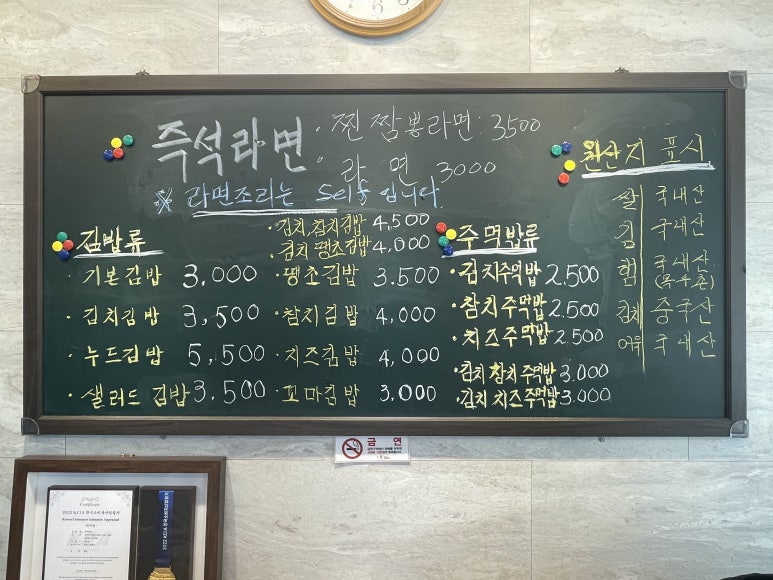 즉석라면
· 찐 짬뽕라면: 3500
· 라면 3000
※ 라면조리는 Self 입니다
김밥류
기본김밥 3,000
· 김치김밥 3,500
· 누드김밥 5,500
· 샐러드 김밥 3,500
· 김치, 참치김밥 4,500
· 김치 땡초김밥 4,000
· 땡초김밥 3,500
· 참치김밥 4,000
· 치즈김밥 4,000
· 꼬마김밥 3,000
주먹밥류
· 김치주먹밥 2,500
· 참치주먹밥 2,500
· 치즈주먹밥 2,500
· 김치 참치주먹밥 3,000
· 김치 치즈주먹밥 3,000
원산지 표시
쌀 국내산
김 국내산
햄 국내산
김치 중국산
어묵 국내산
금연
Certificate
2022 KCIA 한국소비자산업평가
Korean Consumer Industry Appraisal